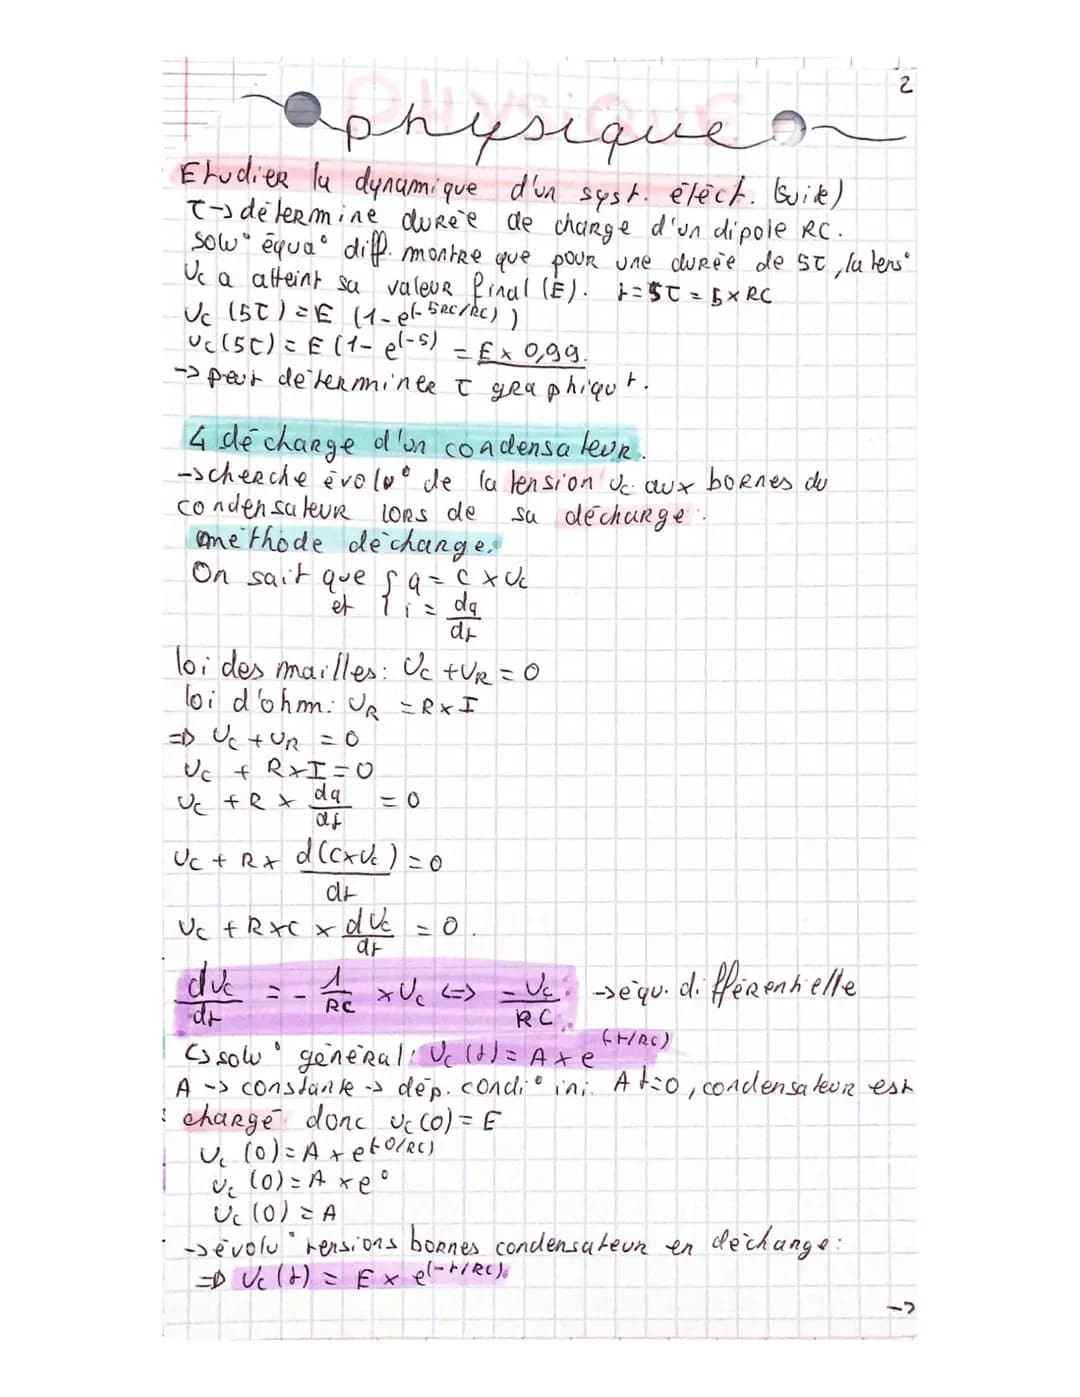 2
physique
Etudier la dynamique d'un syst. élect. (suite)
τ → détermine durée de charge d'un dipole RC.
solu° équa° diff. montre que pour une durée de 5τ, la tens°
Uc a atteint sa valeur final (E). t = 5τ = 5 × RC
Uc (5τ) = E (1 - e(-5RC/RC))
Uc (5τ) = E (1 - e(-5) = E × 0,99.
→ peut déterminer τ graphiqut.
4 décharge d'un condensateur.
→ cherche évolu° de la tension Uc aux bornes du
condensateur lors de sa décharge.
méthode décharge.
On sait que { q = C × Uc
et { i = dq/dt
loi des mailles: Uc + UR = 0
loi d'ohm: UR = R × I
=> Uc + UR = 0
Uc + R × I = 0
Uc + R × dq/dt = 0
Uc + R × d(C×Uc)/dt = 0
Uc + R×C × dUc/dt = 0.
dUc/dt = - 1/RC × Uc <=> - Uc/RC → équ. différentielle
↳ solu° général: Uc (t) = A × e(-t/RC)
A → constante → dép. condi° ini. A t=0, condensateur est
chargé donc Uc (0) = E
Uc (0) = A × e(-0/RC)
Uc (0) = A × e⁰
Uc (0) = A
→ évolu° tensions bornes condensateur en décharge:
=> Uc (t) = E × e(-t/RC).
→